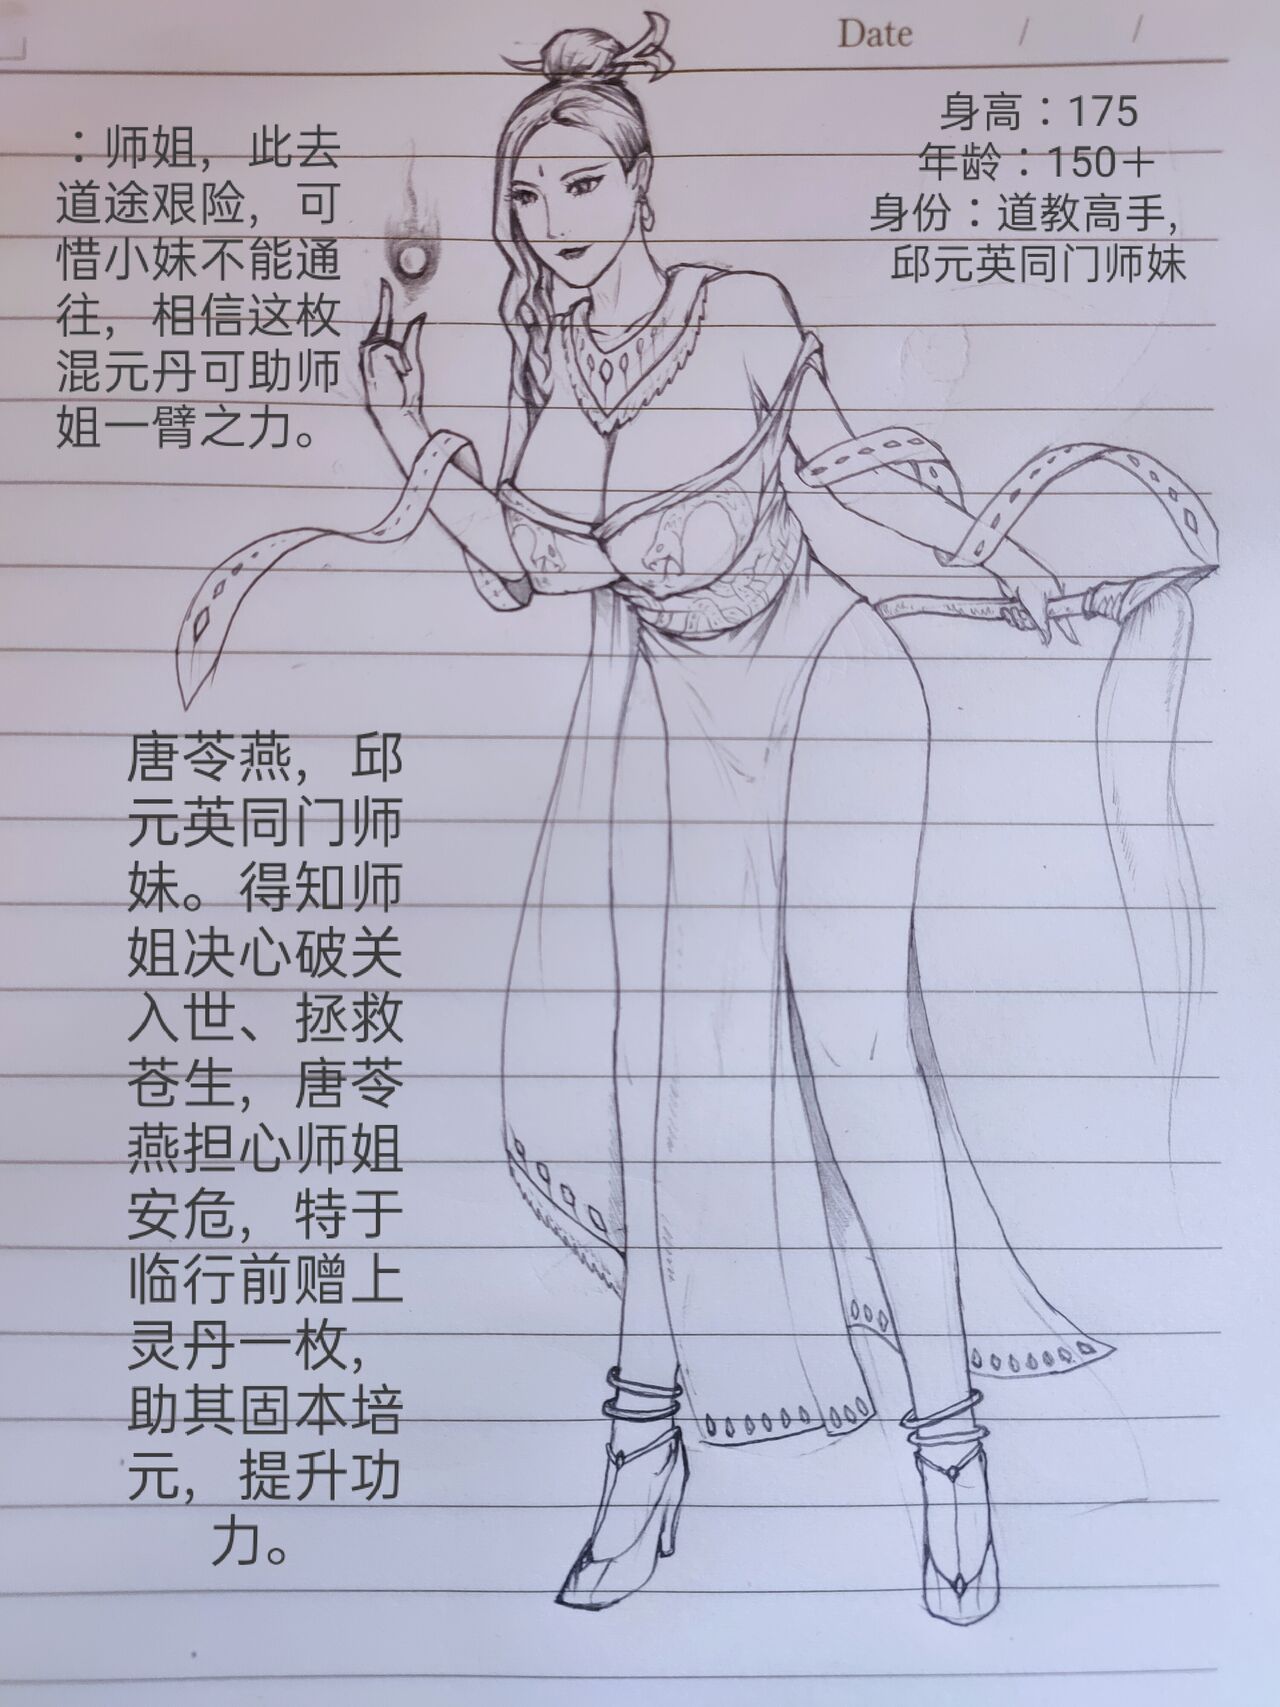 Date / /
：师姐，此去
道途艰险，可
惜小妹不能通
往，相信这枚
混元丹可助师
姐一臂之力。
身高：175
年龄：150＋
身份：道教高手，
邱元英同门师妹
唐苓燕，邱
元英同门师
妹。得知师
姐决心破关
入世、拯救
苍生，唐苓
燕担心师姐
安危，特于
临行前赠上
灵丹一枚，
助其固本培
元，提升功
力。